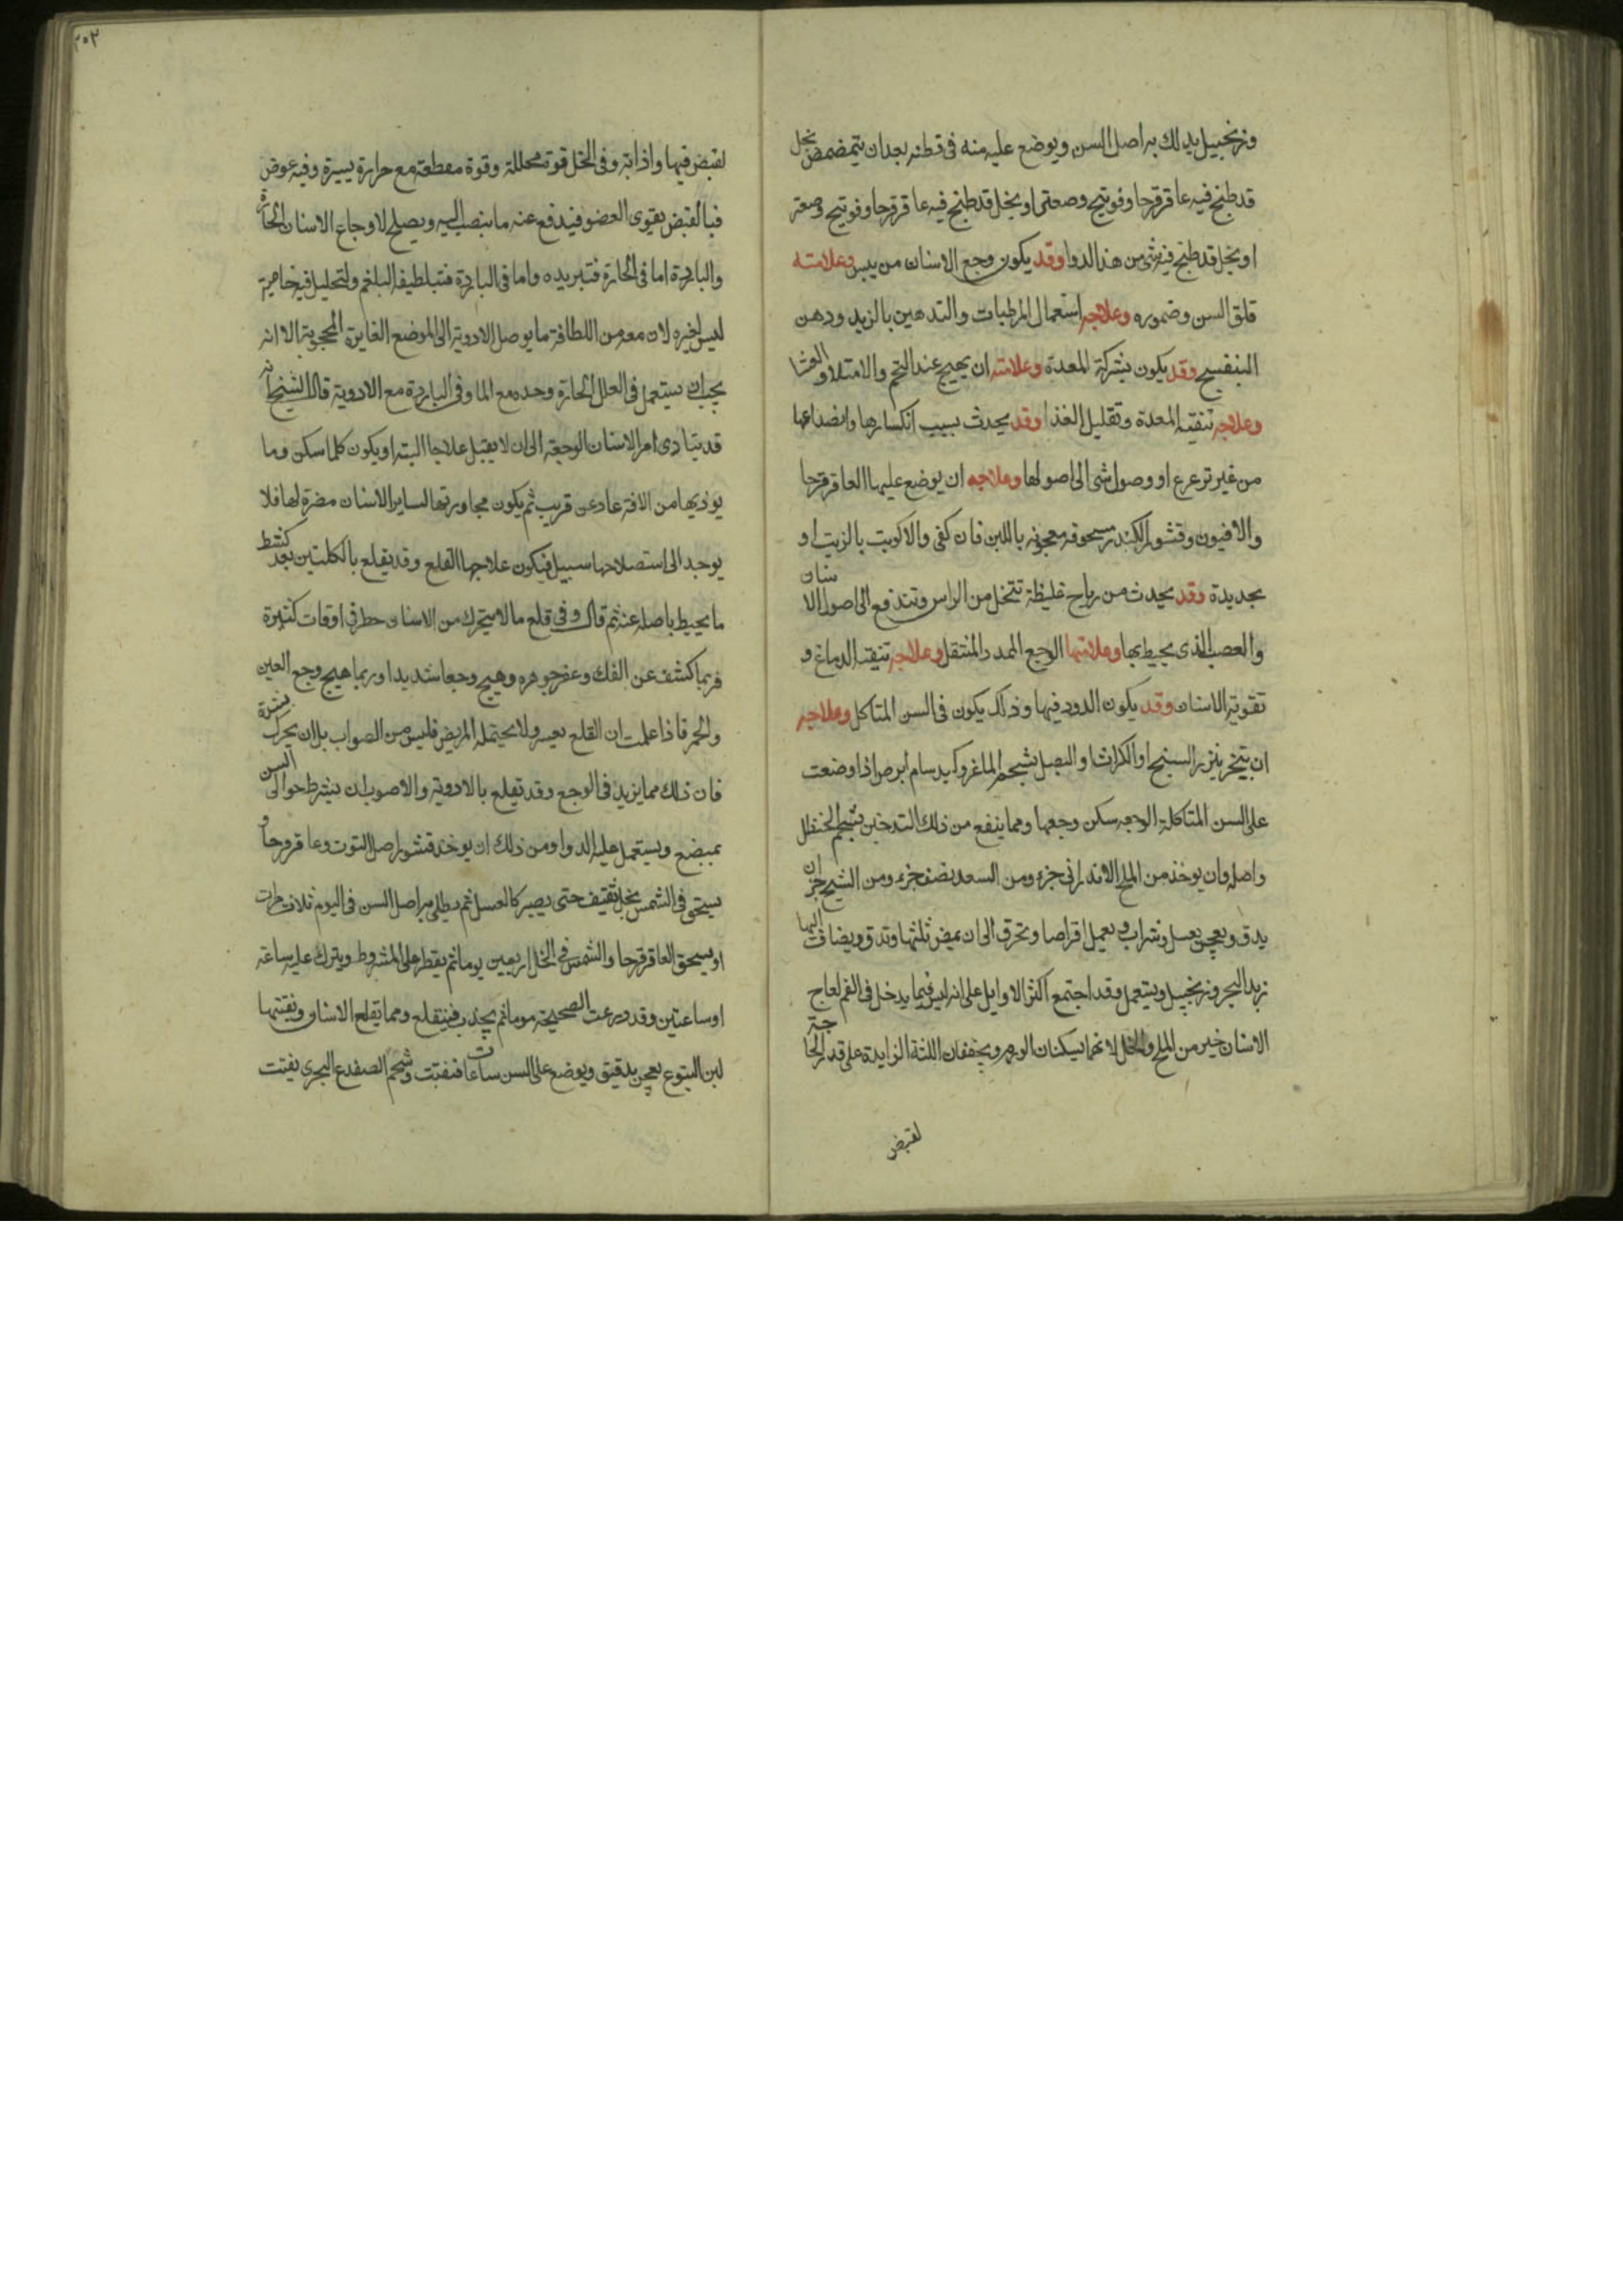 وزنجبيل يدلك به اصل السن ويوضع عليه منه فى قطنه بعد ان يتمضمض بخل
قد طبخ فيه عاقرقرحا وفوتنج وصعتر او بخل قد طبخ فيه عاقرقرحا وفوتنج وصعتر
او بخل قد طبخ فيه شى من هذا الدوا وقد يكون وجع الاسنان من يبس وعلامته
قلق السن وضموره وعلاجه استعمال المرطبات والتدهين بالزبد ودهن
البنفسج وقد يكون بشركة المعدة وعلامته ان يهيج عند التخم والامتلاء والعشا
وعلاجه تنقية المعدة وتقليل الغذا وقد يحدث بسبب انكسارها وانصداعها
من غير تزعزع او وصول شى الى اصولها وعلاجه ان يوضع عليها العاقرقرحا
والافيون وقشور الكندر مسحوقه معجونه باللبن فان كفى والا كويت بالزيت او
بحديدة وقد يحدث من رياح غليظة تتحلل من الراس وتندفع الى اصول الاسنان
والعصب الذى يحيط بها وعلامتها الوجع الممدد المنتقل وعلاجه تنقية الدماغ و
تقوية الاسنان وقد يكون الدود فيها وذلك يكون فى السن المتاكل وعلاجه
ان يتبخر ببزر البنج او الكراث او البصل بشحم الماعز وكبد سام ابرص اذا وضعت
على السن المتاكلة الوجعه سكن وجعها ومما ينفع من ذلك التدخين بشحم الحنظل
واصله وان يوخذ من الملح الاندرانى جزء ومن السعد نصف جزء ومن الشيح جزان
يدق ويعجن بعسل وشراب ويعمل اقراصا وتحرق الى ان يمضى ثلثها وتدق ويضاف اليها
زبد البحر وزنجبيل ويستعمل وقد اجتمع اكثر الاوايل على انه ليس فيما يدخل فى الفم لعلاج
الاسنان خير من الملح والخل لانهما يسكنان الوجع ويجففان اللثة الزايدة على قدر الحاجة
لقبض
٢٥٣
لقبض فيها واذابة وفى الخل قوة محللة وقوة مقطعة مع حرارة يسيرة وفيه عوض
فبالقبض يقوى العضو فيدفع عنه ما ينصب اليه ويصلح لاوجاع الاسنان الحارة
والباردة اما فى الحارة فتبريده واما فى الباردة فتبلطيفه البلغم ولتحليل فيه خاصية
ليس لغيره لان معه من اللطافة ما يوصل الادوية الى الموضع الغايرة المحجوبة الا انه
يجب ان يستعمل فى العلل الحارة وحده مع الما وفى الباردة مع الادوية قال الشيخ انه
قد يتادى امر الاسنان الوجعة الى ان لا يقبل علاجا البته او يكون كلما سكن وما
يوذيها من الافة عاد عن قريب ثم يكون مجاورتها لساير الاسنان مضرة لها فلا
يوجد الى استصلاحها سبيل فيكون علاجها القلع وقد يقلع بالكلبتين بعد كشط
ما يحيط باصله عنه ثم قال وفى قلع ما لا يتحرك من الاسنان خطر فى اوقات كثيرة
فربما كشف عن الفك وعفن جوهره وهيج وجعا شديدا وربما هيج وجع العين
والحمى فاذا علمت ان القلع يعسر ولا يحتمله المريض فليس من الصواب بل ان يحرك بشدة
فان ذلك مما يزيد فى الوجع وقد تقلع بالادوية والاصوب ان يشرط حوالى السن
بمبضع ويستعمل عليه الدوا ومن ذلك ان يوخذ قشور اصل التوت وعاقرقرحا و
يسحق فى الشمس بخل ثقيف حتى يصير كالعسل ثم يطلى به اصل السن فى اليوم ثلاث مرات
او يسحق العاقرقرحا والشمس فى الخل اربعين يوما ثم يقطر على المشروط ويترك عليه ساعة
او ساعتين وقد درعت الصحيحة موما ثم يجذب فينقلع ومما يقلع الاسنان ويفتتها
لبن اليتوع يعجن بدقيق ويوضع على السن ساعات فتفتت وشحم الضفدع البحرى يفتت